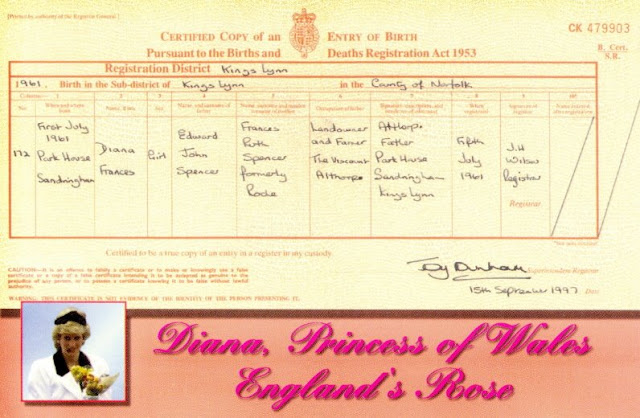 [Printed by authority of the Registrar General.]
CK 479903
CERTIFIED COPY of an ENTRY OF BIRTH
Pursuant to the Births and Deaths Registration Act 1953
B. Cert.
N.R.
Registration District Kings Lynn
1961. Birth in the Sub-district of Kings Lynn in the County of Norfolk
Columns:- 1 2 3 4 5 6 7 8 9
No. When and where born Name, if any Sex Name, and surname of father Name, surname and maiden surname of mother Occupation of father Signature, description, and residence of informant When registered Signature of registrar
172
First July
1961
Park House
Sandringham
Diana
Frances
Girl
Edward
John
Spencer
Frances
Ruth
Spencer
formerly
Roche
Landowner
and Farmer
The Viscount
Althorp
Althorp.
Father
Park House
Sandringham
Kings Lynn
Fifth
July
1961
J.H
Wilson
Registrar
Registrar
Certified to be a true copy of an entry in a register in my custody.
CAUTION—It is an offence to falsify a certificate or to make or knowingly use a false
certificate or a copy of a false certificate intending it to be accepted as genuine to the
prejudice of any person, or to possess a certificate knowing it to be false without lawful
authority.
Superintendent Registrar
15th September 1997 Date
WARNING: THIS CERTIFICATE IS NOT EVIDENCE OF THE IDENTITY OF THE PERSON PRESENTING IT.
Diana, Princess of Wales
England's Rose